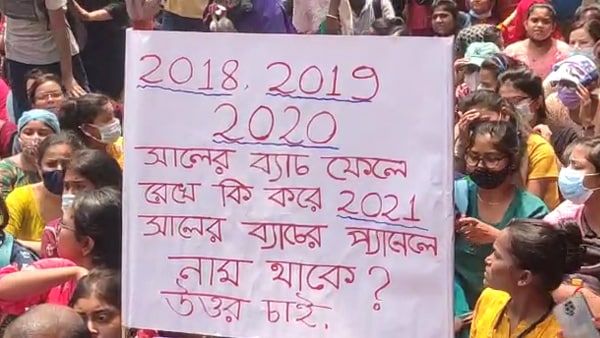 2018, 2019
2020
সালের ব্যাচ ফেলে
রেখে কি করে 2021
সালের ব্যাচের প্যানেলে
নাম থাকে ?
উত্তর চাই.